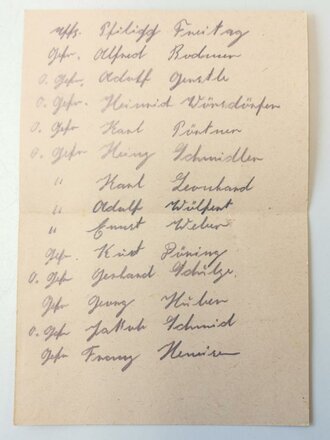 Uffz. Philipp Freitag
Gefr. Alfred Bodmer
O. Gefr. Adolf Gerstle
O. Gefr Heinrich Wörsdörfer
O. Gefr Karl Pörtner
O. Gefr Heinz Schmidler
" Karl Leonhard
" Adolf Wülfert
" Ernst Weber
Gefr. Kurt
O. Gefr Gerhard Schulze.
Gefr Georg Huber
O. Gefr Jakob Schmid
Gefr Franz